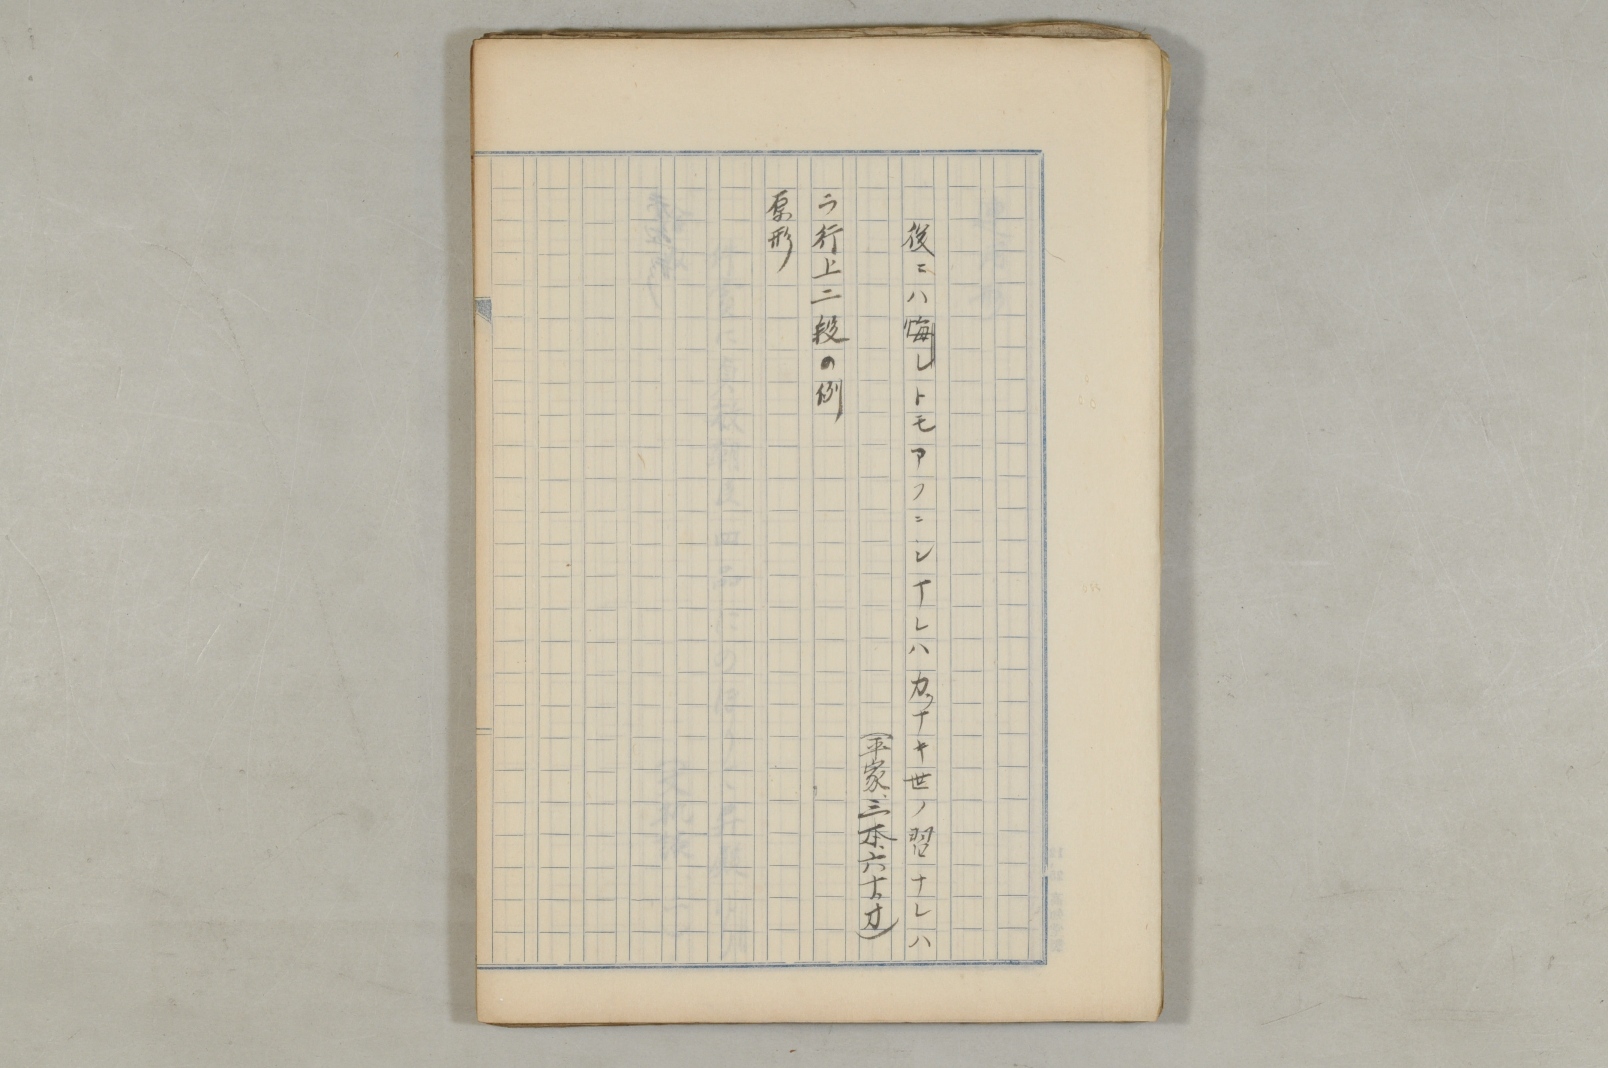 後ニハ悔シトモアフニシナレハカナキ世ノ習ナレハ
(平家、三本六十オ)
ラ行上二段の例
原形